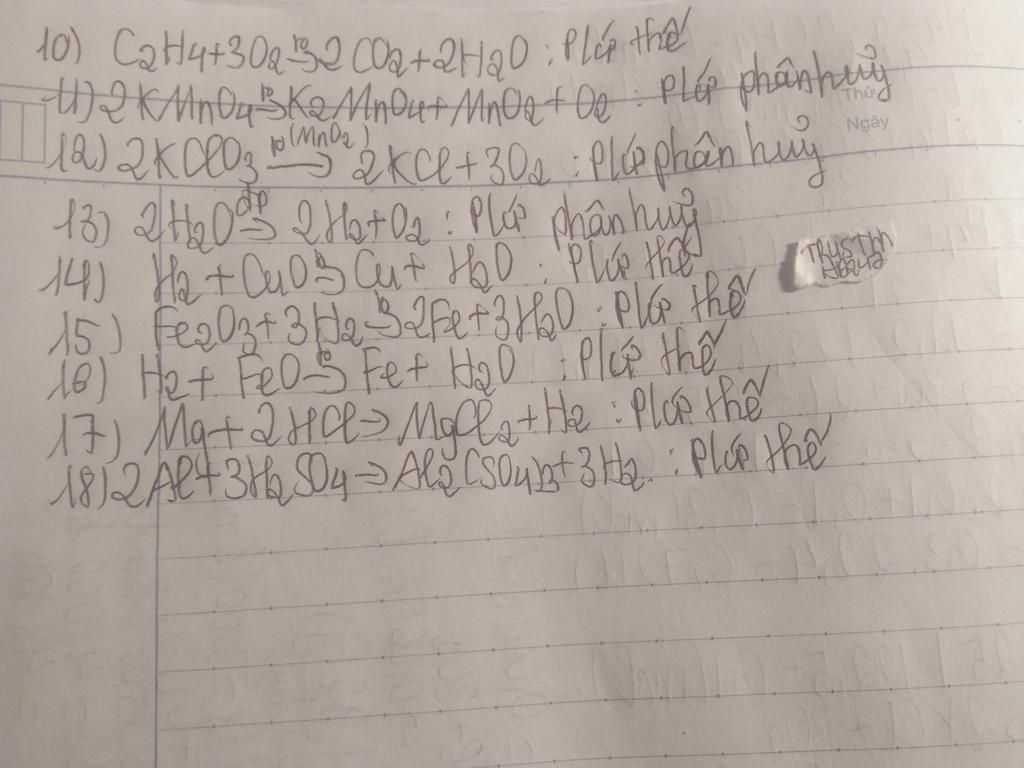 10) C2H4+3O2 t°→ 2CO2+2H2O : Pứ thế
11) 2KMnO4 t°→ K2MnO4+MnO2+O2 : Pứ phân huỷ
Thứ
Ngày
12) 2KClO3 t°(MnO2)→ 2KCl+3O2 : Pứ phân huỷ
13) 2H2O đp→ 2H2+O2 : Pứ phân huỷ
14) H2+CuO t°→ Cu+H2O : Pứ thế
15) Fe2O3+3H2 t°→ 2Fe+3H2O : Pứ thế
16) H2+FeO t°→ Fe+H2O : Pứ thế
17) Mg+2HCl→MgCl2+H2 : Pứ thế
18) 2Al+3H2SO4→Al2(SO4)3+3H2 : Pứ thế